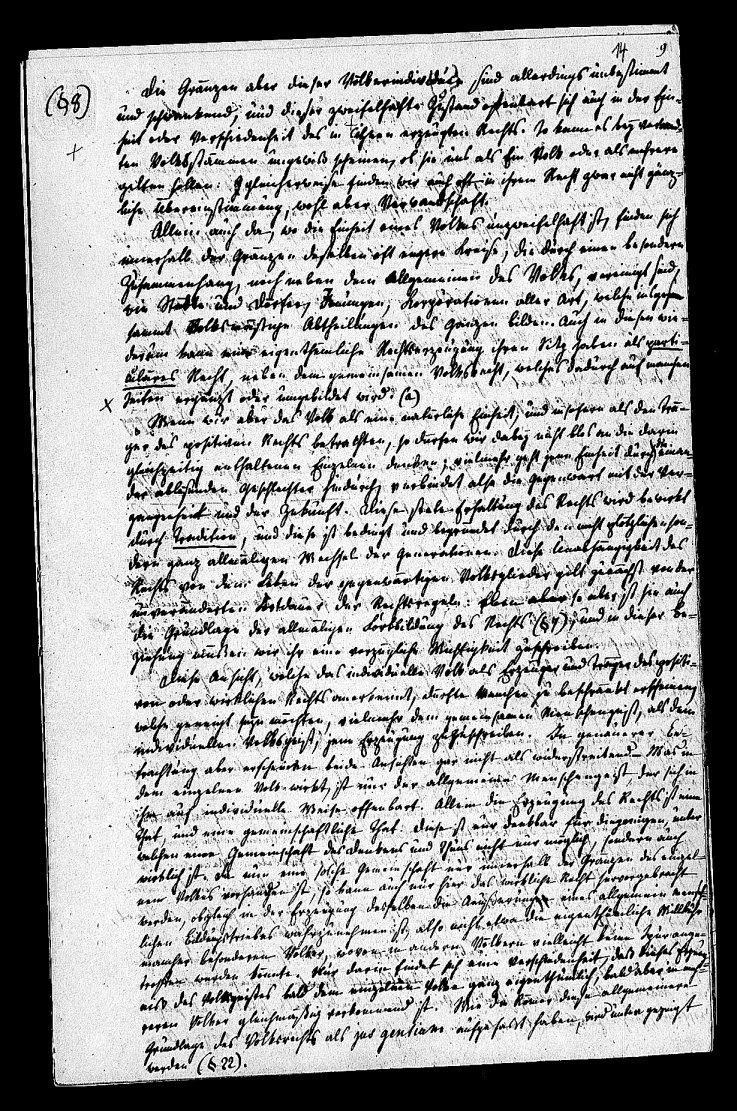 14 9
(§8) Die Gränzen aber dieser Völkerindividuen sind allerdings unbestimmt
und schwankend, und dieser zweifelhafte Zustand offenbart sich auch in der Ein-
heit oder Verschiedenheit des in ihnen erzeugten Rechts. So kann es bey verwand-
ten Volksstämmen ungewiß scheinen, ob sie uns als Ein Volk oder als mehrere
gelten sollen: gleicherweise finden wir auch oft in ihrem Recht zwar nicht gänz-
liche Übereinstimmung, wohl aber Verwandtschaft.
Allein auch da, wo die Einheit eines Volkes unzweifelhaft ist, finden sich
innerhalb der Gränzen desselben oft engere Kreise, die durch einen besondern
Zusammenhang, noch neben dem Allgemeinen des Volks, vereinigt sind,
wie Städte und Dörfer, Innungen, Korporationen aller Art, welche insge-
sammt Volksmäßige Abtheilungen des Ganzen bilden. Auch in diesen wie-
derum kann eine eigenthümliche Rechtserzeugung ihren Sitz haben als parti-
culäres Recht, neben dem gemeinsamen Volksrecht, welches dadurch auf manchen
Seiten ergänzt oder umgebildet wird. (a)
Wenn wir aber das Volk als eine natürliche Einheit, und insofern als den Trä-
ger des positiven Rechts betrachten, so dürfen wir dabey nicht blos an die darin
gleichzeitig enthaltenen Einzelnen denken; vielmehr geht jene Einheit durch die einan-
der ablösenden Geschlechter hindurch, verbindet also die Gegenwart mit der Ver-
gangenheit und der Zukunft. Diese stete Erhaltung des Rechts wird bewirkt
durch Tradition, und diese ist bedingt und begründet durch den nicht plötzlichen son-
dern ganz allmäligen Wechsel der Generationen. Diese Unabhängigkeit des
Rechts von dem Leben der gegenwärtigen Volksglieder gilt zunächst von der
unveränderten Fortdauer der Rechtsregeln: Eben so aber ist sie auch
die Grundlage der allmäligen Fortbildung des Rechts (§7), und in dieser Be-
ziehung müssen wir ihr eine vorzügliche Wichtigkeit zuschreiben.
Diese Ansicht, welche das individuelle Volk als Erzeuger und Träger des positi-
ven oder wirklichen Rechts anerkennt, dürfte Manchen zu beschränkt erscheinen,
welche geneigt seyn möchten, vielmehr dem gemeinsamen Menschengeist, als dem
individuellen Volksgeist, jene Erzeugung zuzuschreiben. In genauerer Be-
trachtung aber erscheinen beide Ansichten gar nicht als widerstreitend. Was in
dem einzelnen Volk wirkt, ist nur der allgemeine Menschengeist der sich in
ihm auf individuelle Weise offenbart. Allein die Erzeugung des Rechts ist eine
That, und eine gemeinschaftliche That. Diese ist nur denkbar für diejenigen, unter
welchen eine Gemeinschaft des Denkens und Thuns nicht nur möglich, sondern auch
wirklich ist. Da nun eine solche Gemeinschaft nur innerhalb der Gränzen des einzel-
nen Volkes vorhanden ist, so kann auch nur hier das wirkliche Recht hervorgebracht
werden, obgleich in der Erzeugung desselben die Äußerung eines allgemein mensch-
lichen Bildungstriebes wahrzunehmen ist, also nicht etwa die eigenthümliche Willkühr
mancher besonderen Völker, wovon in andern Völkern vielleicht keine Spur ange-
troffen werden könnte. Nur darin findet sich eine Verschiedenheit, daß dieses Erzeug-
niß des Volksgeistes bald dem einzelnen Volke ganz eigenthümlich, bald aber in meh-
reren Völker gleichmäßig vorkommend ist. Wie die Römer diese allgemeinere
Grundlage des Volksrechts als jus gentium aufgefaßt haben, wird unten gezeigt
werden (§22).